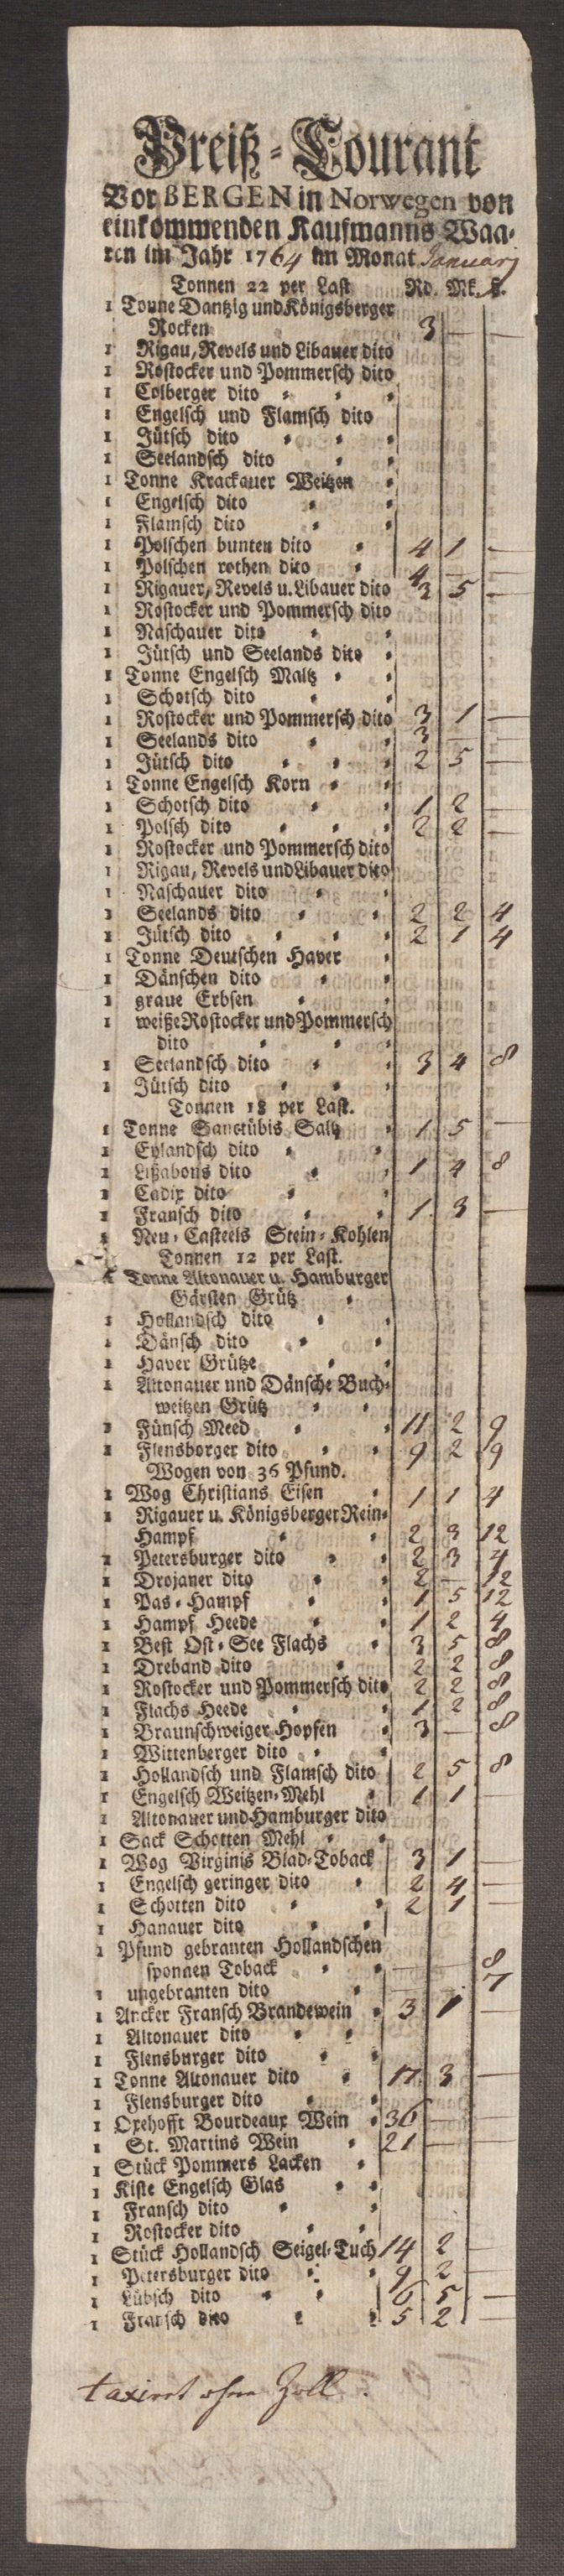 Preiß-Courant
Vor BERGEN in Norwegen von
einkommenden Kaufmanns Waa-
ren im Jahr 1764 im Monat Januarj
Tonnen 22 per Last Rd. Mk. ß.
1 Tonne Dantzig und Königsberger
Rocken 3 — —
1 Rigau, Revels und Libauer dito
1 Rostocker und Pommersch dito
1 Colberger dito
1 Engelsch und Flamsch dito
1 Jütsch dito
1 Seelandsch dito
1 Tonne Krackauer Weitzen
1 Engelsch dito
1 Flamsch dito
1 Polschen bunten dito 4 1 —
1 Polschen rothen dito 4 — —
1 Rigauer, Revels u. Libauer dito 3 5 —
1 Rostocker und Pommersch dito
1 Naschauer dito
1 Jütsch und Seelands dito
1 Tonne Engelsch Maltz
1 Schotsch dito
1 Rostocker und Pommersch dito 3 1 —
1 Seelands dito 3 — —
1 Jütsch dito 2 5 —
1 Tonne Engelsch Korn
1 Schotsch dito 1 2 —
1 Polsch dito 2 2 —
1 Rostocker und Pommersch dito
1 Rigau, Revels und Libauer dito
1 Naschauer dito
1 Seelands dito 2 2 4
1 Jütsch dito 2 1 4
1 Tonne Deutschen Haver
1 Dänschen dito
1 graue Erbsen
1 weiße Rostocker und Pommersch
dito
1 Seelandsch dito 3 4 8
1 Jütsch dito
Tonnen 18 per Last.
1 Tonne Sanctübis Saltz 1 5 —
1 Eylandsch dito
1 Lißabons dito 1 4 8
1 Cadix dito
1 Fransch dito 1 3 —
1 Neu-Casteels Stein-Kohlen
Tonnen 12 per Last.
1 Tonne Altonauer u. Hamburger
Gärsten Grütz
1 Hollandsch dito
1 Dänsch dito
1 Haver Grütze
1 Altonauer und Dänsche Buch-
weitzen Grütz
1 Fünsch Meed 11 2 9
1 Flensborger dito 9 2 9
Wogen von 36 Pfund.
1 Wog Christians Eisen 1 1 4
1 Rigauer u. Königsberger Rein-
Hampf 2 3 12
1 Petersburger dito 2 3 4
1 Drojaner dito 2 — 12
1 Pas-Hampf 1 5 12
1 Hampf Heede 1 2 4
1 Best Ost-See Flachs 3 5 8
1 Dreband dito 2 2 8
1 Rostocker und Pommersch dito 2 2 8
1 Flachs Heede 1 2 8
1 Braunschweiger Hopfen 3 — 8
1 Wittenberger dito
1 Hollandsch und Flamsch dito 2 5 8
1 Engelsch Weitzen-Mehl 1 1 —
1 Altonauer und Hamburger dito
1 Sack Schotten Mehl
1 Wog Virginis Blad-Toback 3 1 —
1 Engelsch geringer dito 2 4 —
1 Schotten dito 2 1 —
1 Hanauer dito
1 Pfund gebranten Hollandschen
sponnen Toback — — 8
1 ungebranten dito — — 7
1 Ancker Fransch Brandewein 3 1 —
1 Altonauer dito
1 Flensburger dito
1 Tonne Altonauer dito 17 3 —
1 Flensburger dito
1 Oxehofft Bourdeaux Wein 36 — —
1 St. Martins Wein 21 — —
1 Stück Pommers Lacken
1 Kiste Engelsch Glas
1 Fransch dito
1 Rostocker dito
1 Stück Hollandsch Seigel-Tuch 14 2 —
1 Petersburger dito 9 2 —
1 Lübsch dito 6 5 —
1 Fransch dito 5 2 —
taxirt ohne Zoll.